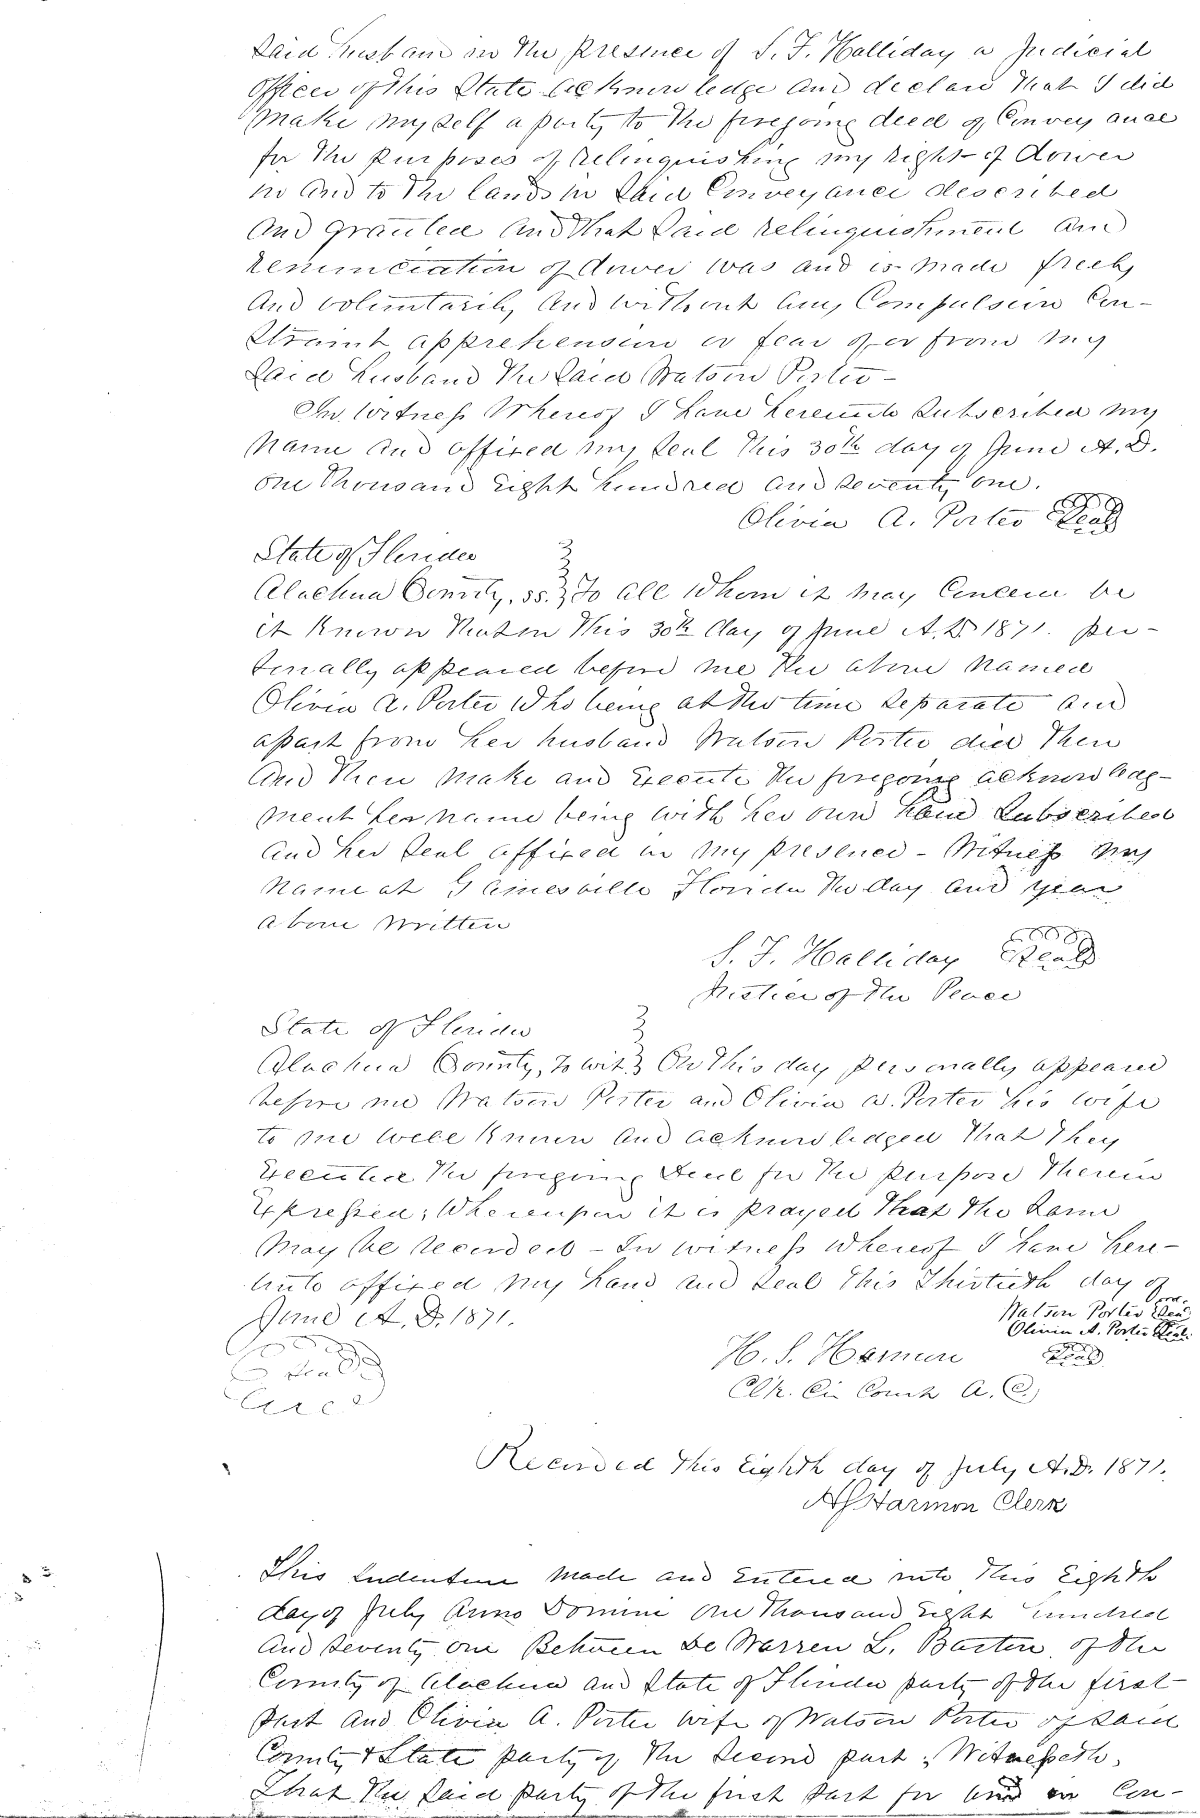 said husband in the presence of S. F. Halliday a Judicial
officer of this State acknowledge and declare that I did
make myself a party to the foregoing deed of Conveyance
for the purposes of relinquishing my right of dower
in and to the lands in said Conveyance described
and granted and that said relinquishment and
renunciation of dower was and is made freely
and voluntarily and without any Compulsion Con-
straint apprehension or fear of or from my
said husband the said Watson Porter –
In Witness Whereof I have hereunto subscribed my
name and affixed my seal this 30th day of June A.D.
one thousand Eight hundred and seventy one.
Olivia A. Porter Seal
State of Florida
Alachua County, ss. To all Whom it may Concern be
it Known that on this 30th day of June A.D. 1871. per-
sonally appeared before me the above named
Olivia A. Porter Who being at the time separate and
apart from her husband Watson Porter did then
and there make and Execute the foregoing acknowledg-
ment her name being with her own hand Subscribed
and her seal affixed in my presence – Witness my
name at Gainesville Florida the day and year
above written
S. F. Halliday Seal
Justice of the Peace
State of Florida
Alachua County, to wit. On this day personally appeared
before me Watson Porter and Olivia A. Porter his wife
to me well Known and acknowledged that they
Executed the foregoing deed for the purpose therein
Expressed; Whereupon it is prayed that the same
may be recorded – In witness Whereof I have here-
unto affixed my hand and seal this thirtieth day of
June A.D. 1871.
Watson Porter Seal
Olivia A. Porter Seal
H. S. Harmon Seal
Seal
Clk. Cir Court A. C.
Recorded this Eighth day of July A.D. 1871.
HS Harmon Clerk
This Indenture made and Entered into this Eighth
day of July Anno Domini one thousand Eight hundred
and seventy one Between De Warren L. Barton of the
County of Alachua and State of Florida party of the first
part and Olivia A. Porter wife of Watson Porter of said
County & State party of the second part; Witnesseth,
That the said party of the first part for and in Con-